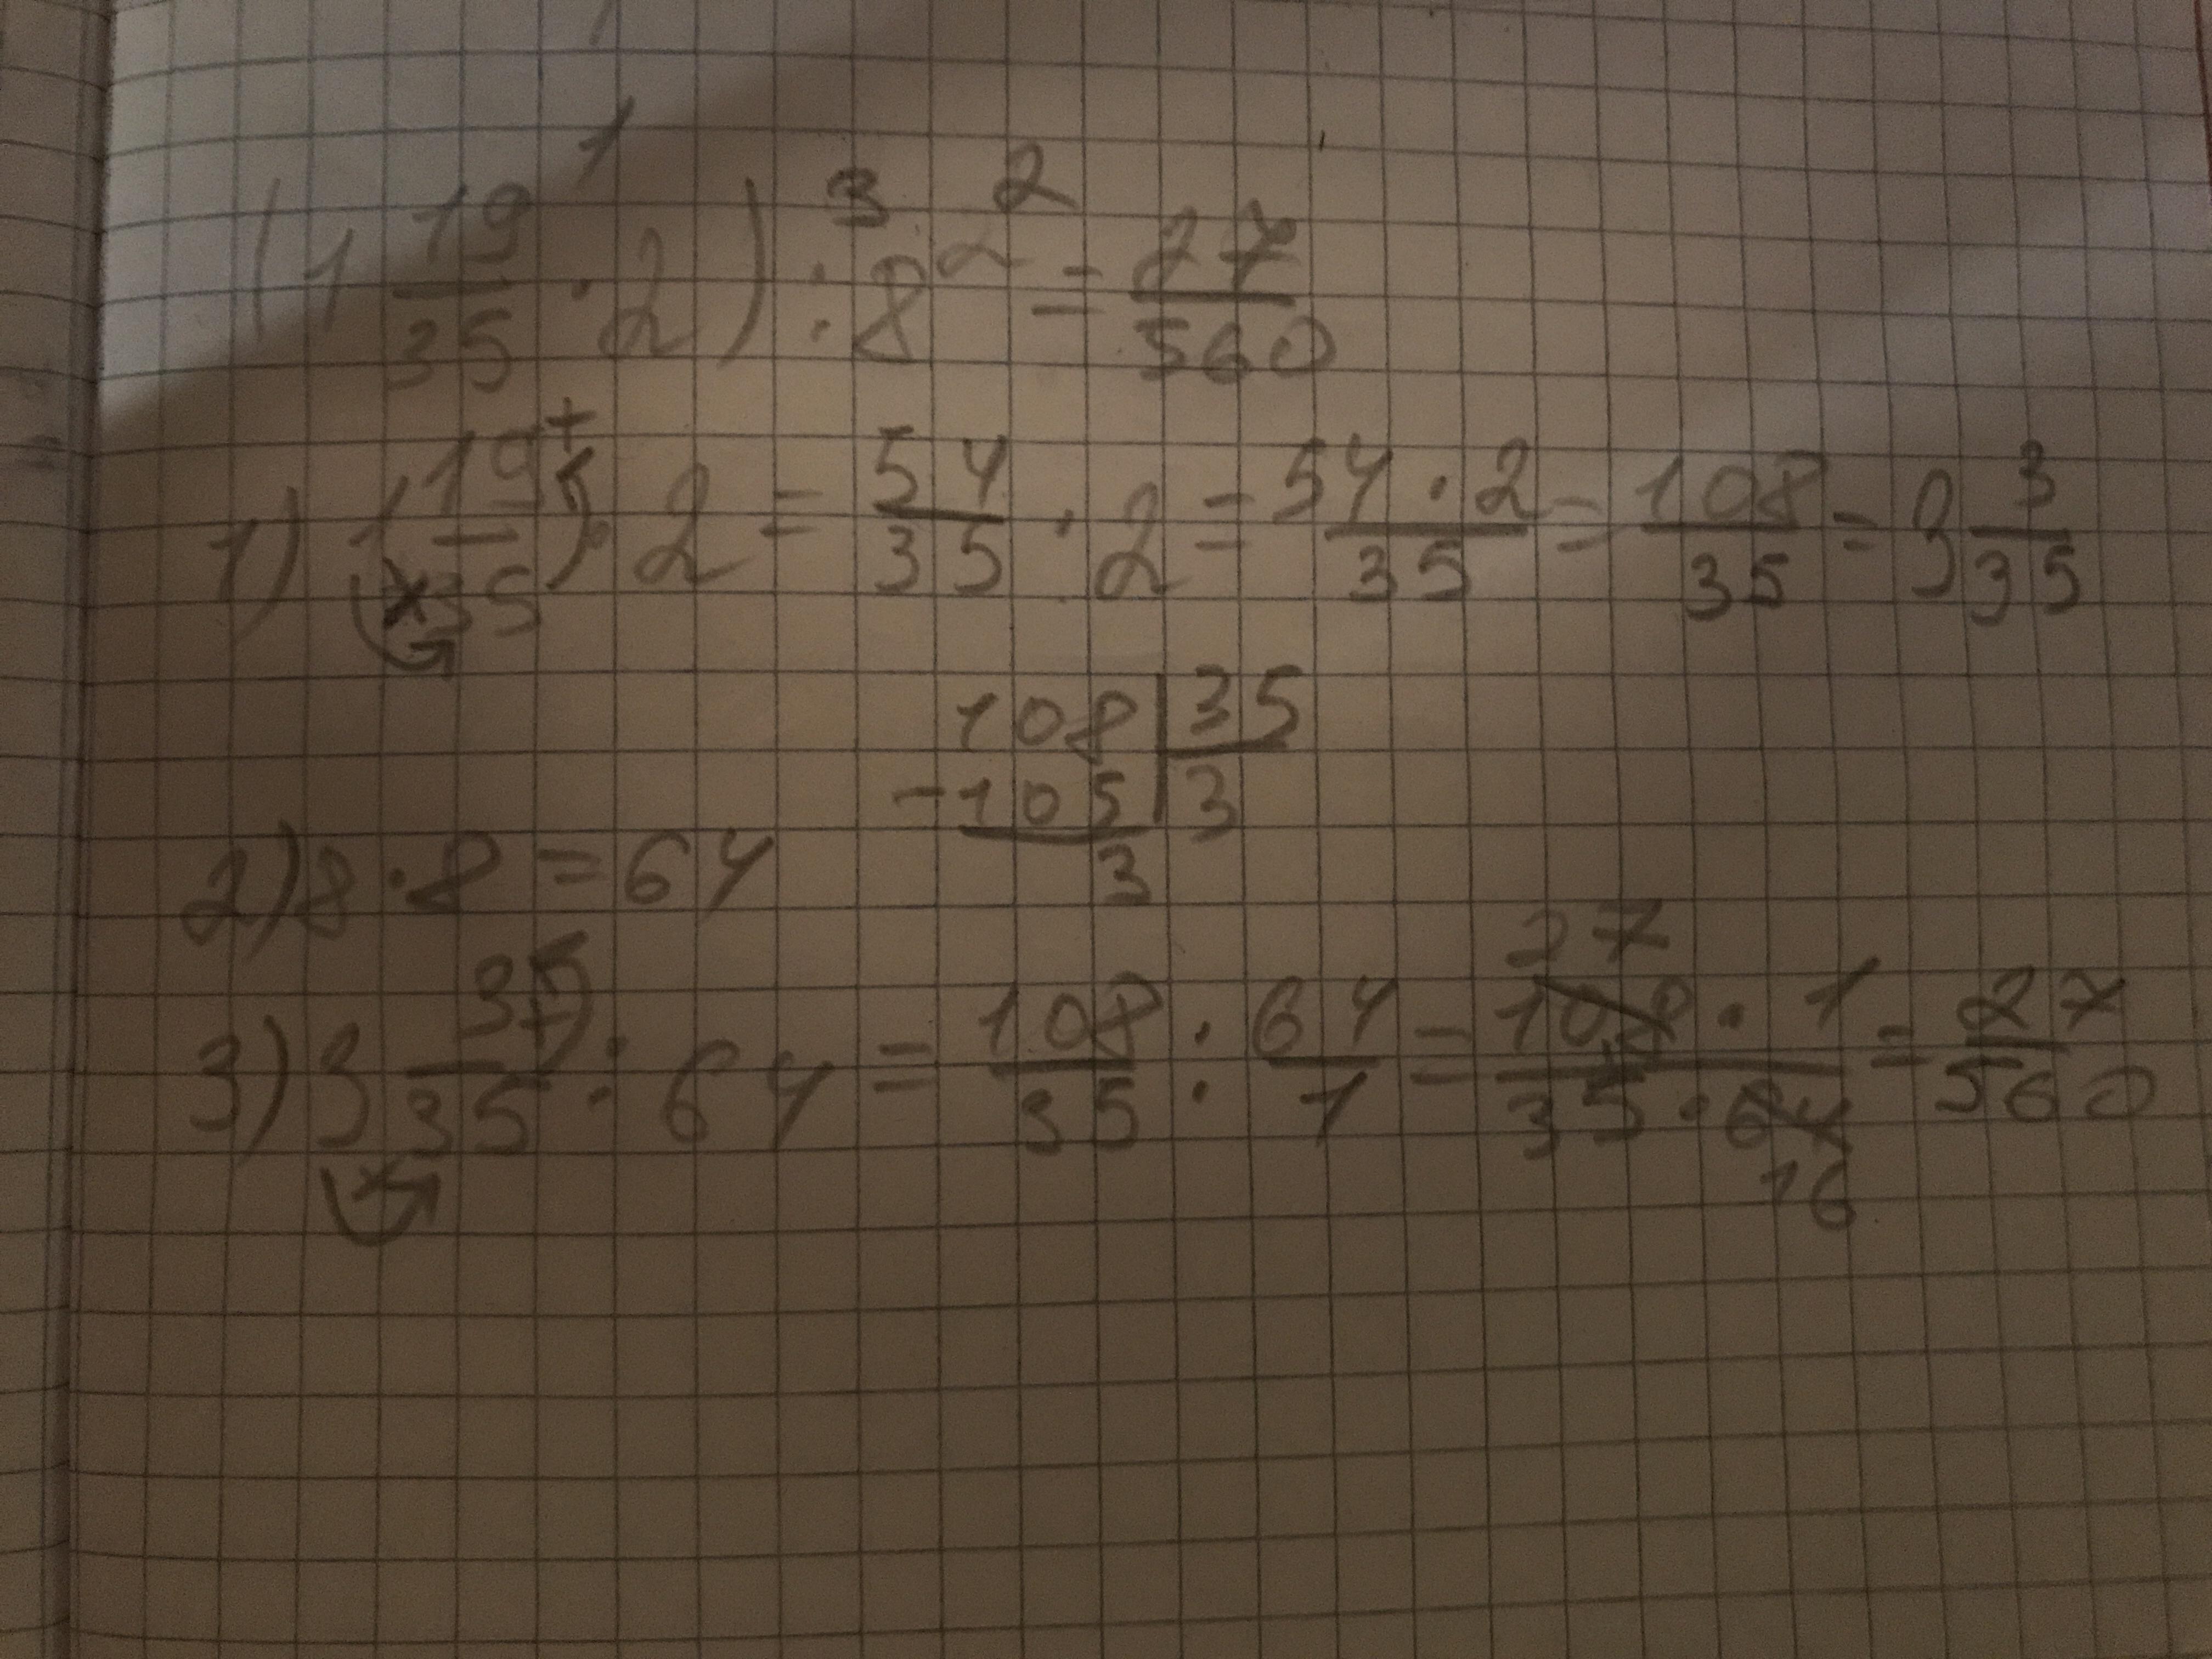 (1 19/35 · 2) : 8² = 27/560
1 3 2
1) 1 19/35 · 2 = 54/35 · 2 = 54 · 2/35 = 108/35 = 3 3/35
108 | 35
-105 | 3
3
2) 8 · 8 = 64
3) 3 3/35 : 64 = 108/35 : 64/1 = 108 · 1/35 · 64 = 27/560
27
16